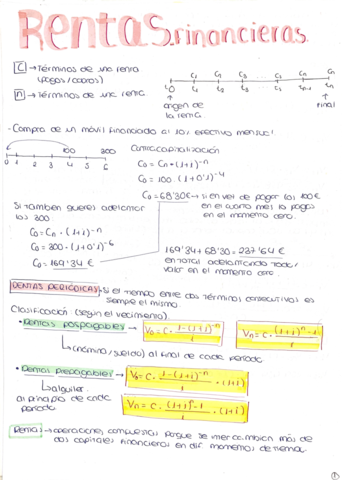 Rentas financieras.
C → Términos de una renta
(pagos/cobros)
C₁ C₂ C₃ ... Cn
t₀ t₁ t₂ t₃ ... tn-1 tn
origen de la renta
final
n → Términos de una renta.
- Compra de un móvil financiado al 10% efectivo mensual.
100 300
0 1 2 3 4 5 6
Contracapitalización
C₀ = Cn · (1+i)⁻ⁿ
C₀ = 100 · (1+0'1)⁻⁴
C₀ = 68'30€ → si en vez de pagar los 100€
en el cuarto mes lo pagas
en el momento cero.
Si también quieres adelantar
los 300.
C₀ = Cn · (1+i)⁻ⁿ
C₀ = 300 · (1+0'1)⁻⁶
C₀ = 169'34 €
169'34 + 68'30 = 237'64 €
en total adelantando todo/
valor en el momento cero
RENTAS PERIÓDICAS - Si el tiempo entre dos términos consecutivos es
siempre el mismo.
Clasificación (según el vecimiento).
• Rentas pospagables → V₀ = C · 1-(1+i)⁻ⁿ / i Vn = C · (1+i)ⁿ-1 / i
↳ (nómina/sueldo) al final de cada período
• Rentas prepagables → V₀ = C · 1-(1+i)⁻ⁿ / i · (1+i)
↳ alquiler
al principio de cada
período
Vn = C · (1+i)ⁿ-1 / i · (1+i)
Rentas → operaciones compuestas porque se intercambian más de
dos capitales financieros en dif. momentos de tiempo.
1